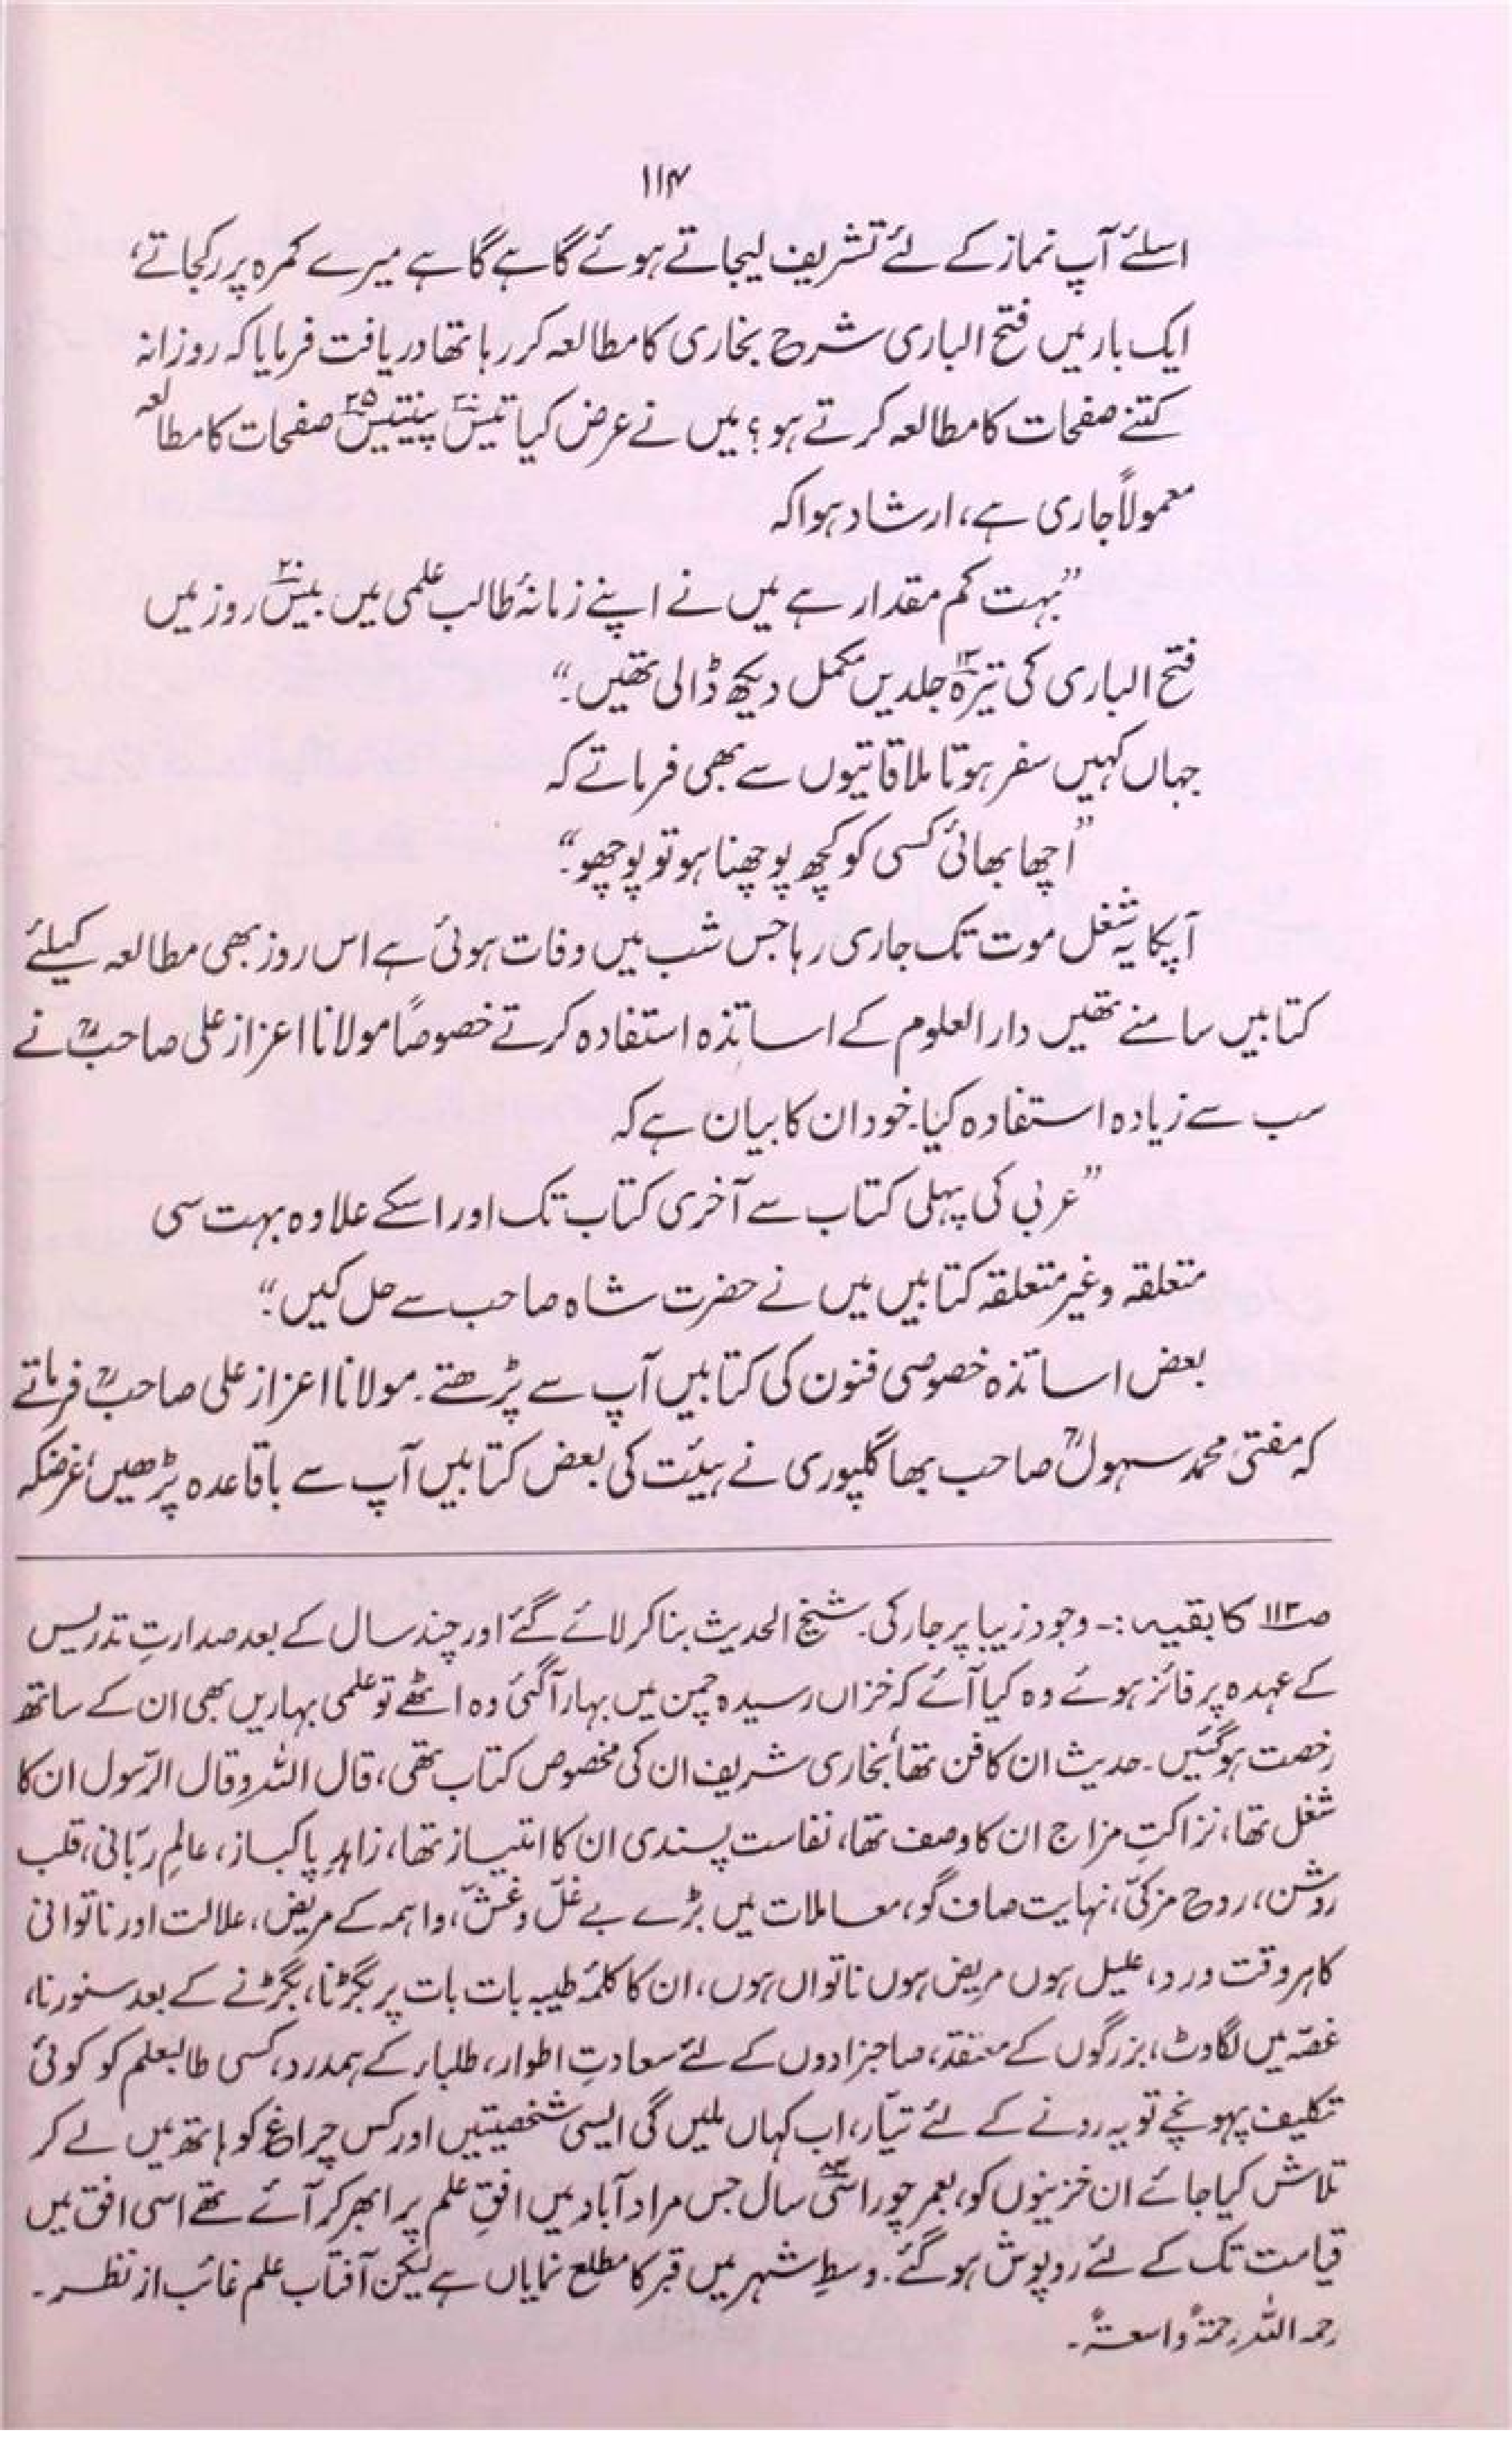 ۱۱۴
اسلئے آپ نماز کے لئے تشریف لیجاتے ہوئے گاہے گاہے میرے کمرہ پر رکجاتے،
ایک بار میں فتح الباری شرح بخاری کا مطالعہ کر رہا تھا دریافت فرمایا کہ روزانہ
کتنے صفحات کا مطالعہ کرتے ہو؟ میں نے عرض کیا تیس۳۰ پینتیس۳۵ صفحات کا مطالعہ
معمولاً جاری ہے، ارشاد ہوا کہ
”بہت کم مقدار ہے میں نے اپنے زمانۂ طالب علمی میں بیس۲۰ روز میں
فتح الباری کی تیرہ۱۳ جلدیں مکمل دیکھ ڈالی تھیں۔“
جہاں کہیں سفر ہوتا ملاقاتیوں سے بھی فرماتے کہ
”اچھا بھائی کسی کو کچھ پوچھنا ہو تو پوچھو۔“
آپکا یہ شغل موت تک جاری رہا جس شب میں وفات ہوئی ہے اس روز بھی مطالعہ کیلئے
کتابیں سامنے تھیں دارالعلوم کے اساتذہ استفادہ کرتے خصوصاً مولانا اعزاز علی صاحبؒ نے
سب سے زیادہ استفادہ کیا۔ خود ان کا بیان ہے کہ
”عربی کی پہلی کتاب سے آخری کتاب تک اور اسکے علاوہ بہت سی
متعلقہ وغیر متعلقہ کتابیں میں نے حضرت شاہ صاحب سے حل کیں۔“
بعض اساتذہ خصوصی فنون کی کتابیں آپ سے پڑھتے۔ مولانا اعزاز علی صاحبؒ فرماتے
کہ مفتی محمد سہولؒ صاحب بھاگلپوری نے ہیئت کی بعض کتابیں آپ سے باقاعدہ پڑھیں، غرضکہ
صـ۱۱۳ کا بقیہ :- وجود زیبا پر جار کی۔ شیخ الحدیث بنا کر لائے گئے اور چند سال کے بعد صدارتِ تدریس
کے عہدہ پر فائز ہوئے وہ کیا آئے کہ خزاں رسیدہ چمن میں بہار آگئی وہ اٹھے تو علمی بہاریں بھی ان کے ساتھ
رخصت ہوگئیں۔ حدیث ان کا فن تھا، بخاری شریف ان کی مخصوص کتاب تھی، قال اللہ وقال الرّسول ان کا
شغل تھا، نزاکتِ مزاج ان کا وصف تھا، نفاست پسندی ان کا امتیاز تھا، زاہدِ پاکباز، عالمِ ربّانی، قلب
روشن، روح مزکیّٰ، نہایت صاف گو، معاملات میں بڑے بے غلّ وغشّ، واہمہ کے مریض، علالت اور ناتوانی
کا ہر وقت ورد، علیل ہوں مریض ہوں ناتواں ہوں، ان کا کلمۂ طیبہ بات بات پر بگڑنا، بگڑنے کے بعد سنورنا،
غصّہ میں لگاوٹ، بزرگوں کے معتقد، صاحبزادوں کے لئے سعادتِ اطوار، طلباء کے ہمدرد، کسی طالبعلم کو کوئی
تکلیف پہونچے تو یہ رونے کے لئے تیّار، اب کہاں ملیں گی ایسی شخصیتیں اور کس چراغ کو ہاتھ میں لے کر
تلاش کیا جائے ان خزینوں کو، بعمر چوراسّی۸۴ سال جس مرادآباد میں افقِ علم پر ابھر کر آئے تھے اسی افق میں
قیامت تک کے لئے روپوش ہوگئے۔ وسطِ شہر میں قبر کا مطلع نمایاں ہے لیکن آفتاب علم غائب از نظر۔
رحمہ اللہ رحمۃً واسعۃً۔